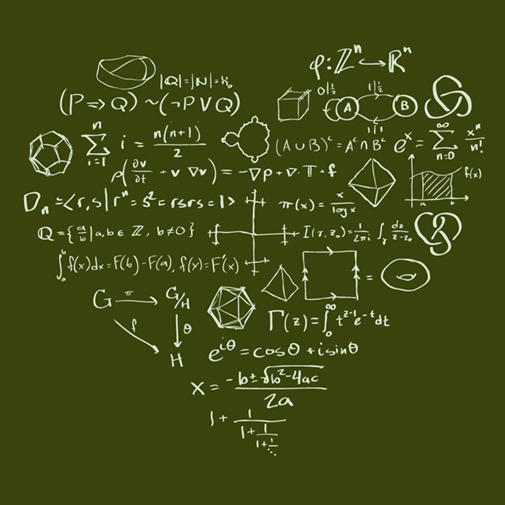 φ: ℤⁿ ↪ ℝⁿ
|ℚ|=|ℕ|=ℵ₀
0|½ 1|½
A B
1|1
(P ⇒ Q) ~ (¬P ∨ Q)
n Σ i=1 i = n(n+1)/2
(A ∪ B)ᶜ = Aᶜ ∩ Bᶜ
eˣ = ∞ Σ n=0 xⁿ/n!
f(x)
a b
ρ(∂v/∂t + v·∇v) = -∇p + ∇·T + f
Dₙ = <r, s | rⁿ = s² = rsrs = 1>
π(x) = x/log x
ℚ = {a/b | a, b ∈ ℤ, b ≠ 0}
I(γ, z₀) = 1/2πi ∫γ dz/z-z₀
∫ₐᵇ f(x)dx = F(b) - F(a), f(x) = F'(x)
=
G π G/H
f θ
H
Γ(z) = ∫₀^∞ t^(z-1) e^(-t) dt
e^(iθ) = cosθ + i sinθ
x = -b±√b²-4ac / 2a
1 + 1/1 + 1/1 + 1/1 + ⋱